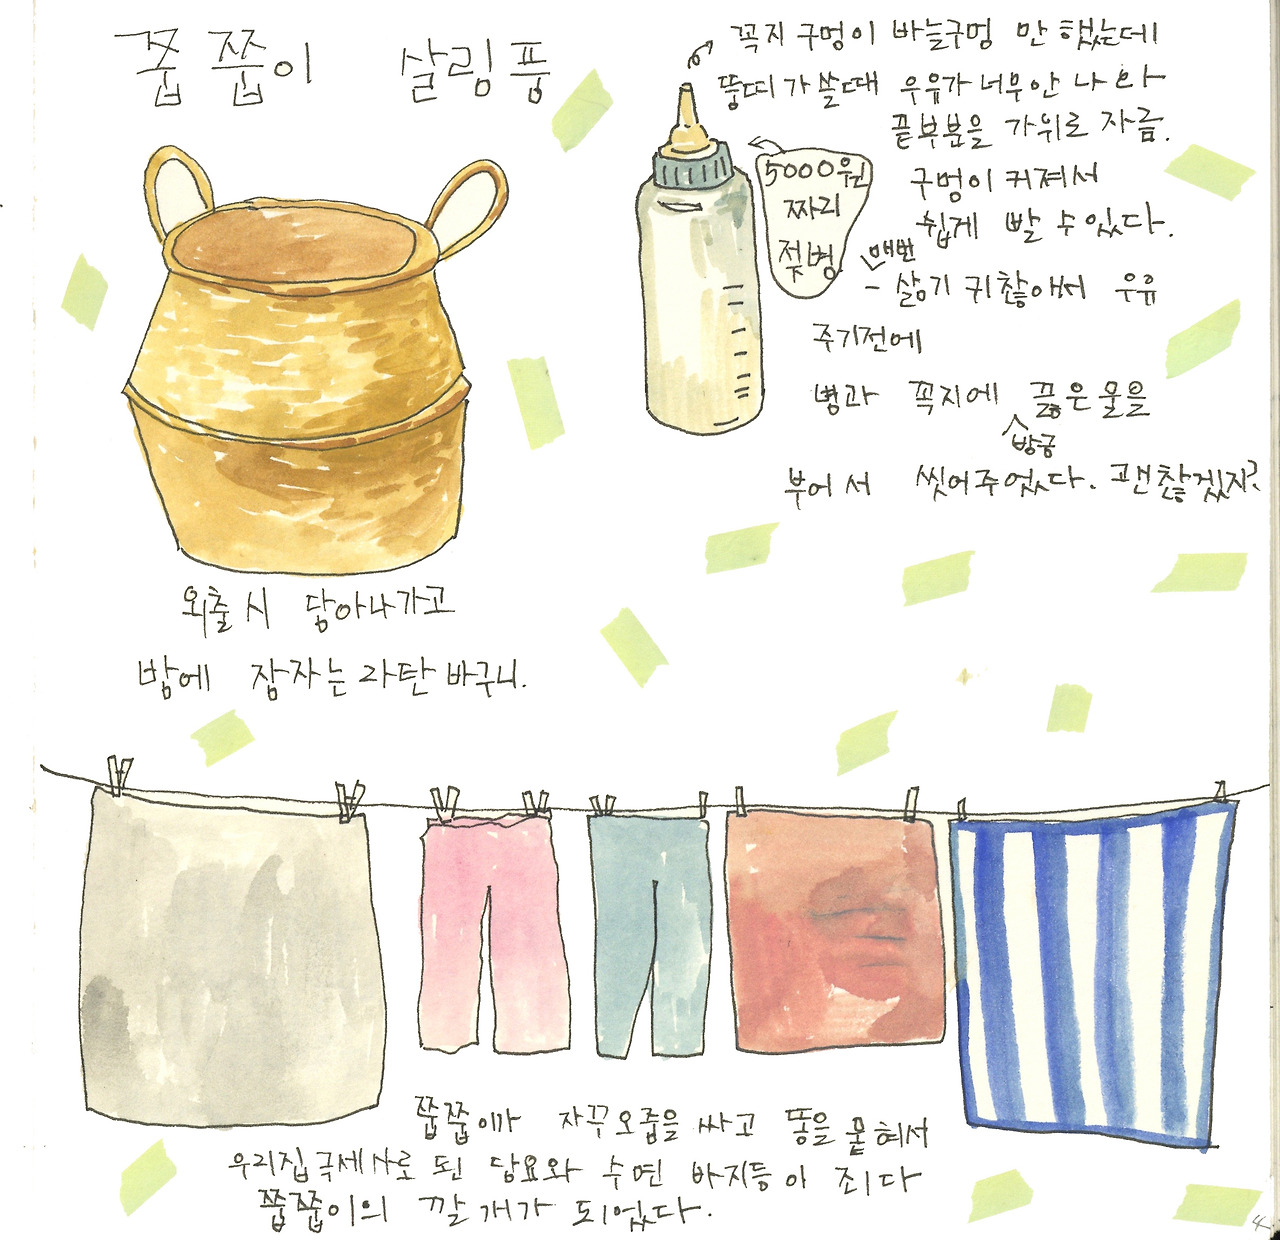 쭙쭙이 살림품
꼭지 구멍이 바늘구멍 만 했는데
뚱띠가 쓸때 우유가 너무 안 나와
끝부분을 가위로 자름.
구멍이 커져서
쉽게 빨 수 있다.
5000원
짜리
젖병
매번
- 삶기 귀찮아서 우유
주기전에
병과 꼭지에 끓은 물을
방금
부어서 씻어주었다. 괜찮겠지?
외출 시 담아나가고
밤에 잠자는 라탄 바구니.
쭙쭙이가 자꾸 오줌을 싸고 똥을 묻혀서
우리집 극세사로 된 담요와 수면 바지들이 죄다
쭙쭙이의 깔개가 되었다.